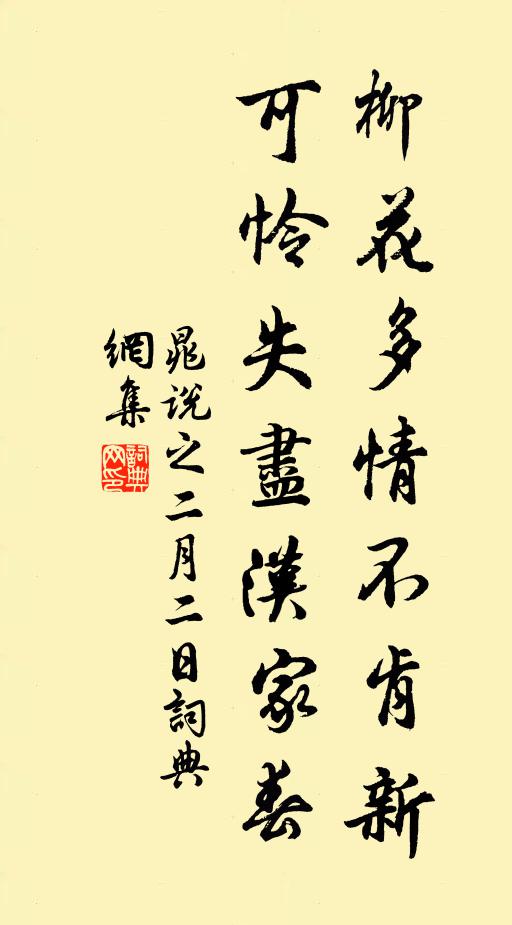 柳花多情不肯新
可憐失盡漢家春
晁說之二月二日詞典
網集
詞典
網印